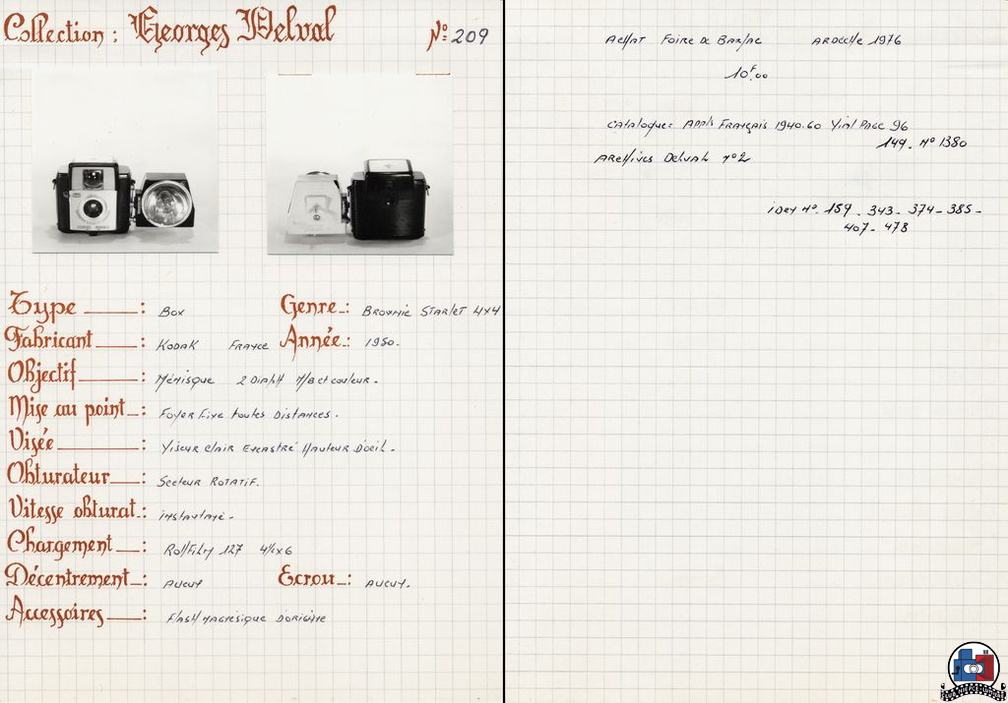 Collection : Georges Delval Nº 209
Type : Box
Genre : Brownie Starlet 4x4
Fabricant : Kodak France
Année : 1950.
Objectif : Ménisque 2 Diaph N/B et couleur.
Mise au point : Foyer Fixe toutes Distances.
Visée : Viseur clair Encastré Hauteur D'oeil.
Obturateur : Secteur Rotatif.
Vitesse obturat. : instantané.
Chargement : Rollfilm 127
Décentrement : Aucun
Ecrou : Aucun.
Accessoires : Flash magnésique D'origine
Achat Foire de Barjac Ardèche 1976
10F,00
Catalogue: App1s Français 1940.60 Vial Page 96
149. Nº 1380
Archives Delval nº2
iden Nº. 159 - 343 - 374 - 385 -
407 - 478